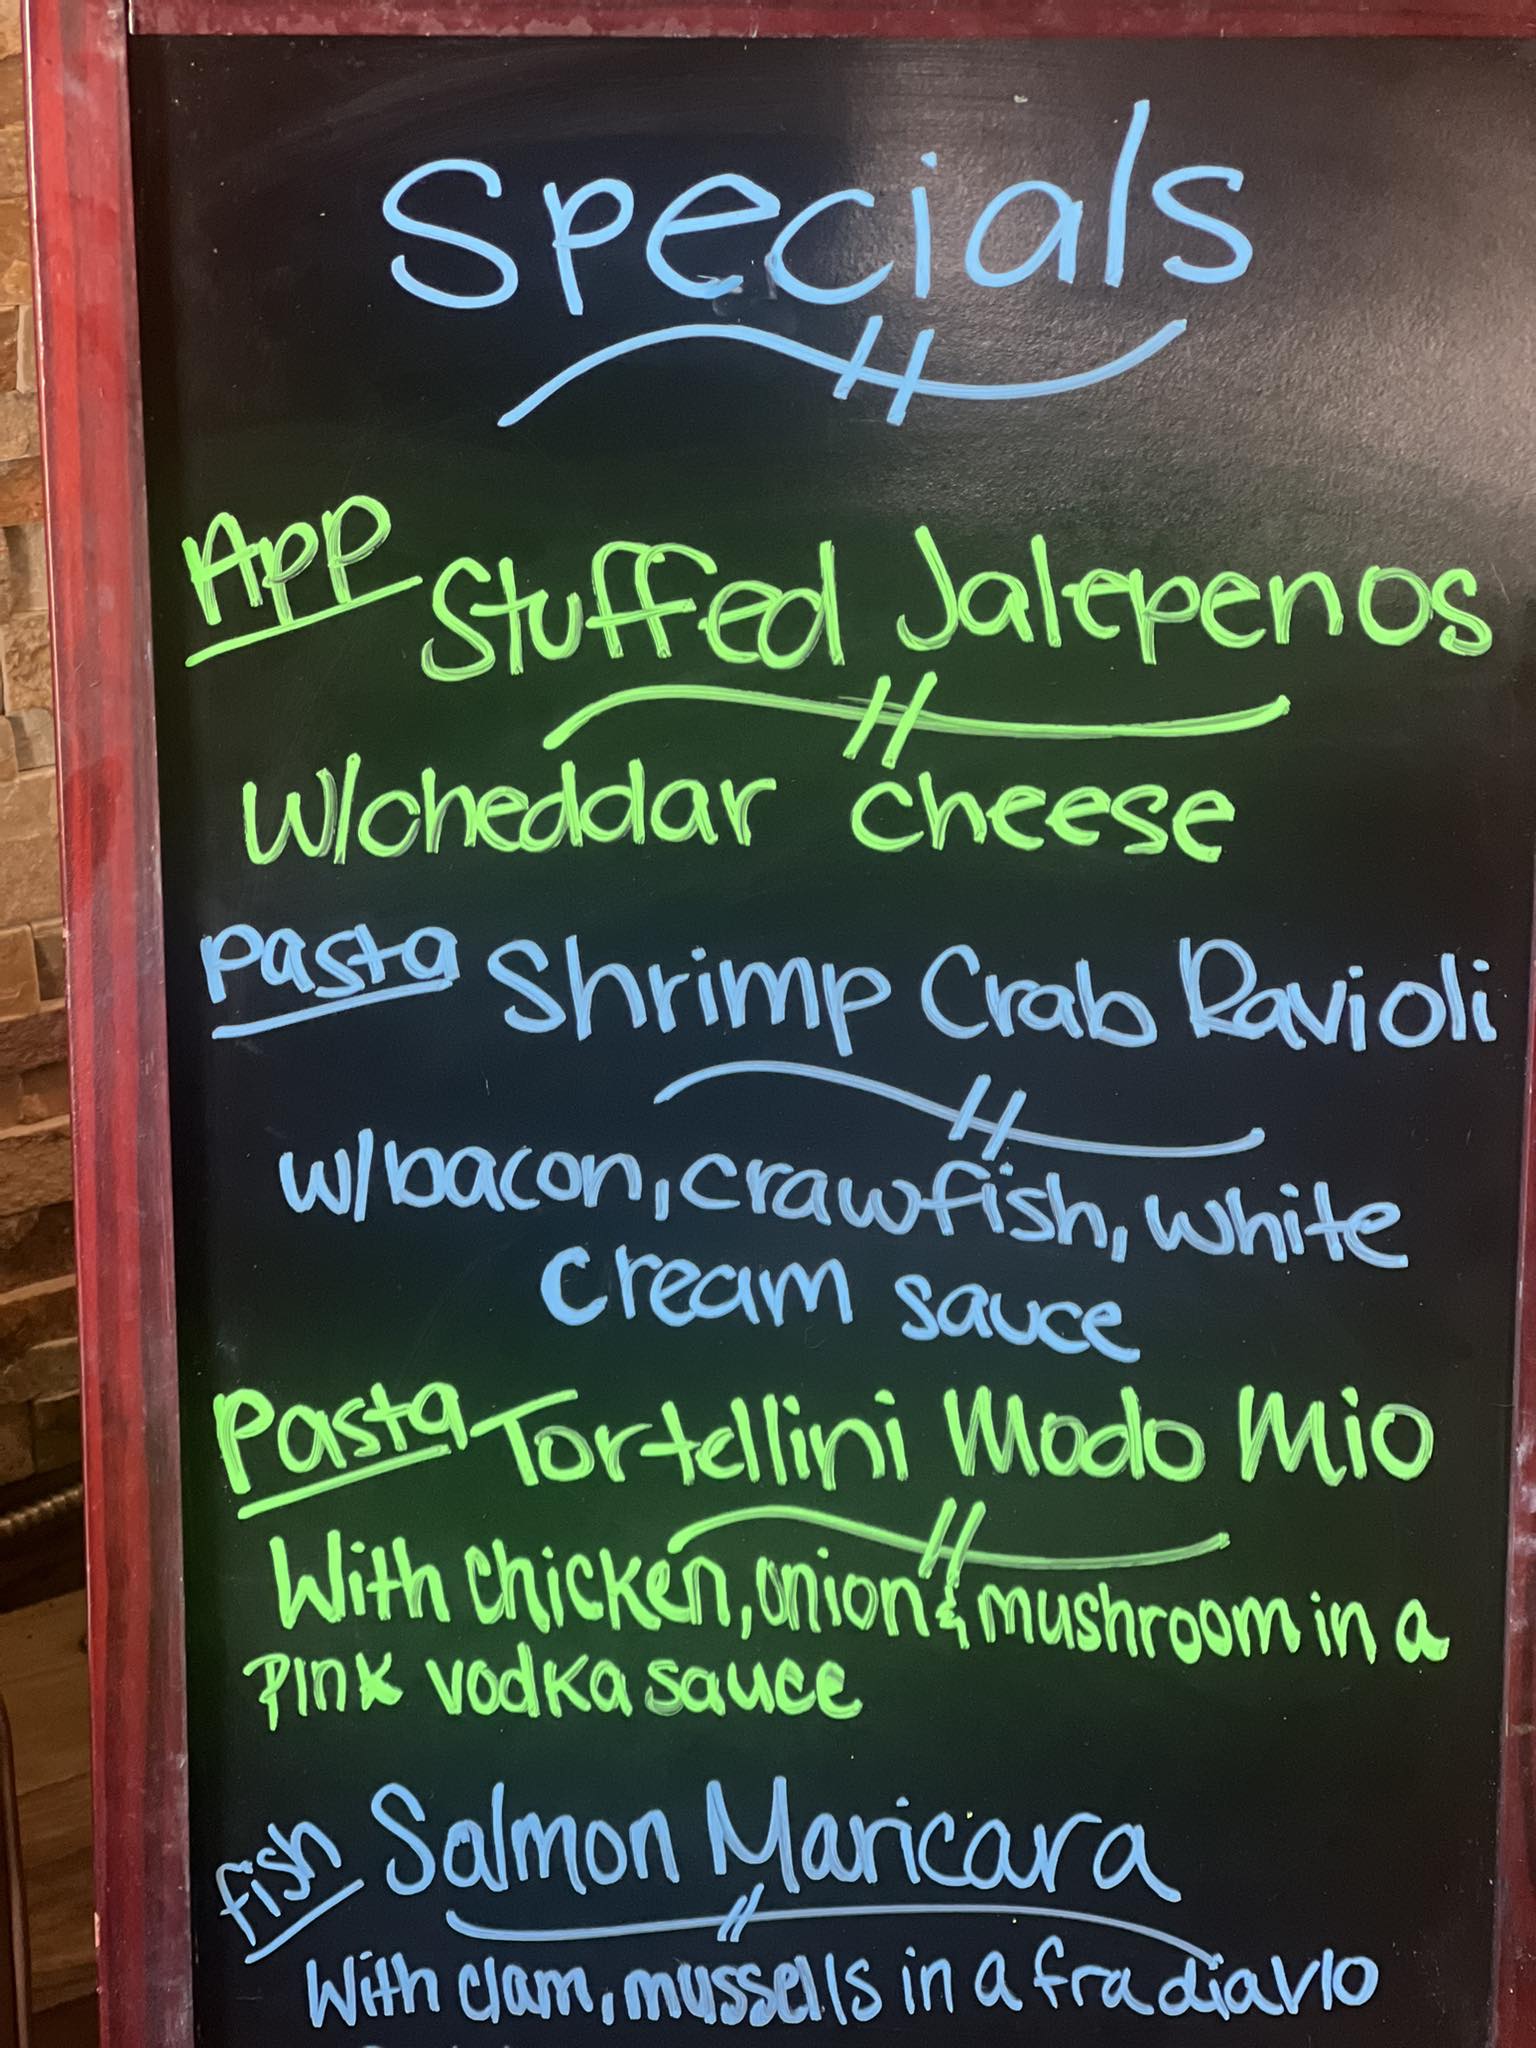 Specials
App Stuffed Jalepenos
w/cheddar cheese
Pasta Shrimp Crab Ravioli
w/bacon, crawfish, white
cream sauce
Pasta Tortellini Modo Mio
With chicken, onion & mushroom in a
pink vodka sauce
Fish Salmon Maricara
With clam, mussells in a fra diavlo